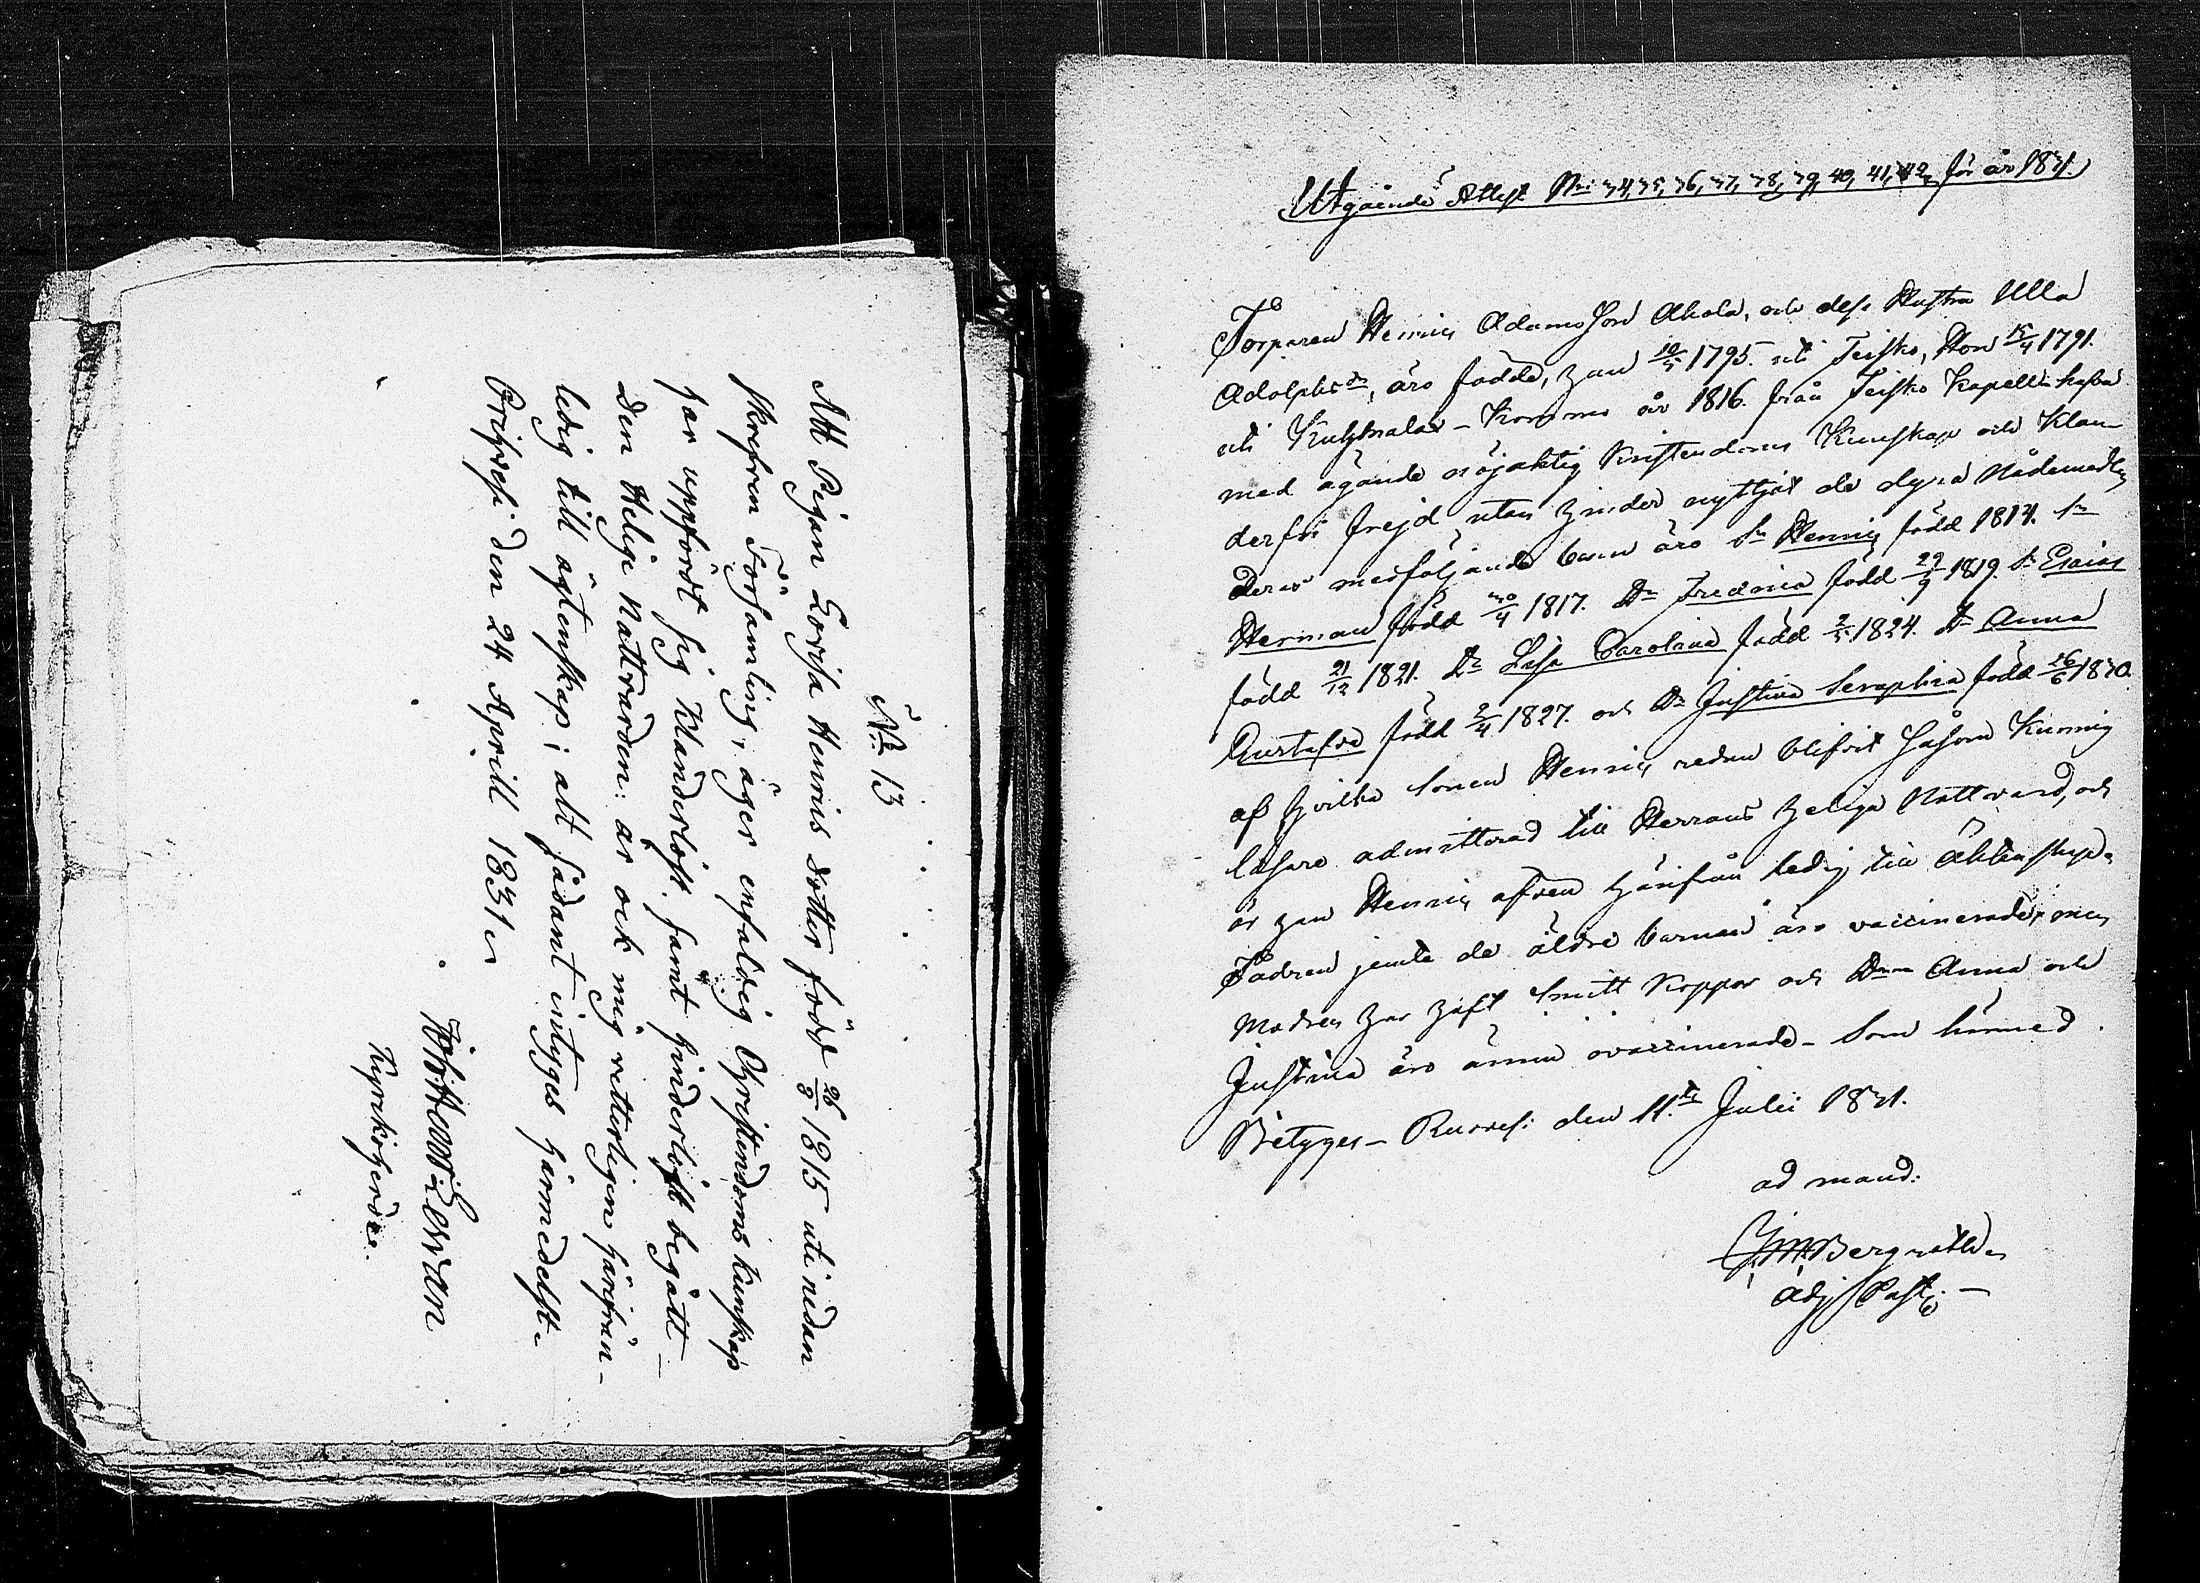 No 13
Att Pigan Lovisa Henrics dotter född 26/8 1815 uti nedan
skrefven Församling, äger enfaldig Christendoms kunskap
har uppfördt sig klanderlöst samt hinderlöst begått
den Helige Nattvarden: är ock mig vetterligen härifrån
ledig till ägtenskap; alt sådant intyges härmedelst.
Orihvesi den 24 Aprill 1831
Kyrckoherde.
Utgående Attest N:ris 34, 35, 36, 37, 38, 39, 40, 41, 42, för år 1831.
Torparen Henric Adamsson Ahola, och dess Hustru Ulla
Adolphsdr, äro födde, han 10/5 1795. uti Teisko, Hon 15/4 1791.
uti Kuhmalax - Komne år 1816. från Teisko Kapell - hafva
med ägande nöjaktig Kristendoms Kunskap och Klan-
derfri frejd utan hinder nyttjat de dyra Nådemedlen
deras medföljande barn äro Sn Henric född 1814. Sn
Herman född 30/4 1817. Dr Fredrica född 29/9 1819. Sn Esaias
född 21/12 1821. Dr Lisa Carolina född 2/5 1824. Dr Anna
Gustafva född 2/4 1827. och Dr Justina Seraphia född 26/6 1830.
af hvilka Sonen Henric redan blifvit såsom Kunnig
läsare admitterad till Herrans heliga Nattvard, och
är han Henric afven härifrån ledig till Äktenskap.
Fadren jemte de äldre barnen äro vaccinerade, men
Modren har haft Smitt Koppor och Drna Anna och
Justina äro ännu ovaccinerade - Som härmed
Betygas - Ruoves: den 11te Julii 1831.
ad mand:
Bergroth
Adj: Past: